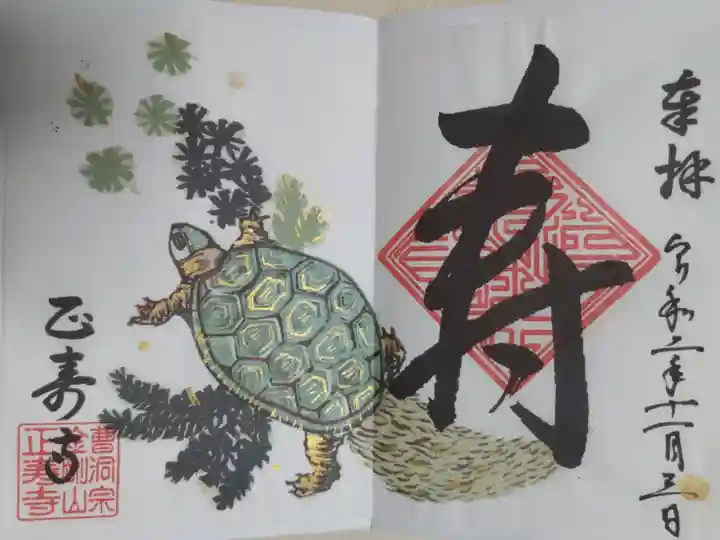 奉拝
令和二年十一月三日
寿
正寿寺
曹洞宗
金剛山
正寿寺